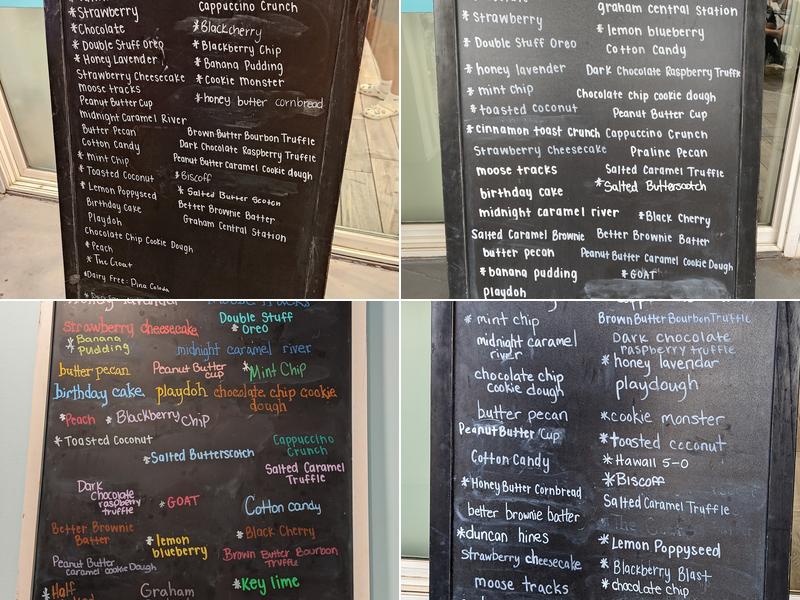 *Strawberry
*Chocolate
*Double Stuff Oreo
*Honey Lavender
Strawberry Cheesecake
moose tracks
Peanut Butter Cup
midnight Caramel River
Butter Pecan
Cotton Candy
*Mint Chip
*Toasted Coconut
*Lemon Poppyseed
Birthday Cake
Playdoh
Chocolate Chip Cookie Dough
*Peach
*The Goat
*Dairy Free: Pina Colada
Cappuccino Crunch
*Blackcherry
*Blackberry Chip
*Banana Pudding
*Cookie Monster
*honey butter cornbread
Brown Butter Bourbon Truffle
Dark Chocolate Raspberry Truffle
Peanut Butter Caramel Cookie dough
*Biscoff
*Salted Butter Scotch
Better Brownie Batter
Graham Central Station
*Strawberry
*Double Stuff Oreo
*honey lavender
*mint chip
*toasted coconut
*cinnamon toast Crunch
Strawberry cheesecake
moose tracks
birthday cake
midnight caramel river
Salted Caramel Brownie
butter pecan
*banana pudding
playdoh
graham central Station
*lemon blueberry
Cotton Candy
Dark Chocolate Raspberry Truffle
Chocolate chip cookie dough
Peanut Butter Cup
Cappuccino Crunch
Praline Pecan
Salted Caramel Truffle
*Salted Butterscotch
*Black Cherry
Better Brownie Batter
Peanut Butter Caramel Cookie Dough
*GOAT
Honey lavender moose Tracks
Strawberry cheesecake
Double Stuff
*Oreo
*Banana
Pudding
midnight caramel river
butter pecan
Peanut Butter
cup
*Mint Chip
birthday cake
playdoh
chocolate chip cookie
dough
*Peach
*Blackberry Chip
*Toasted Coconut
*Salted Butterscotch
Cappuccino
Crunch
Salted Caramel
Truffle
Dark
Chocolate
raspberry
truffle
*GOAT
Cotton candy
Better Brownie
Batter
*lemon
blueberry
*Black Cherry
Peanut Butter
caramel cookie Dough
Brown Butter Bourbon
Truffle
*Half
Graham
*Key lime
*mint chip
midnight caramel
river
chocolate chip
cookie dough
butter pecan
Peanut Butter Cup
Cotton Candy
*Honey Butter Cornbread
better brownie batter
*duncan hines
Strawberry cheesecake
moose tracks
Brown Butter Bourbon Truffle
Dark chocolate
raspberry truffle
*honey lavendar
playdough
*cookie monster
*toasted coconut
*Hawaii 5-0
*Biscoff
Salted Caramel Truffle
*Lemon Poppyseed
*Blackberry Blast
*chocolate chip